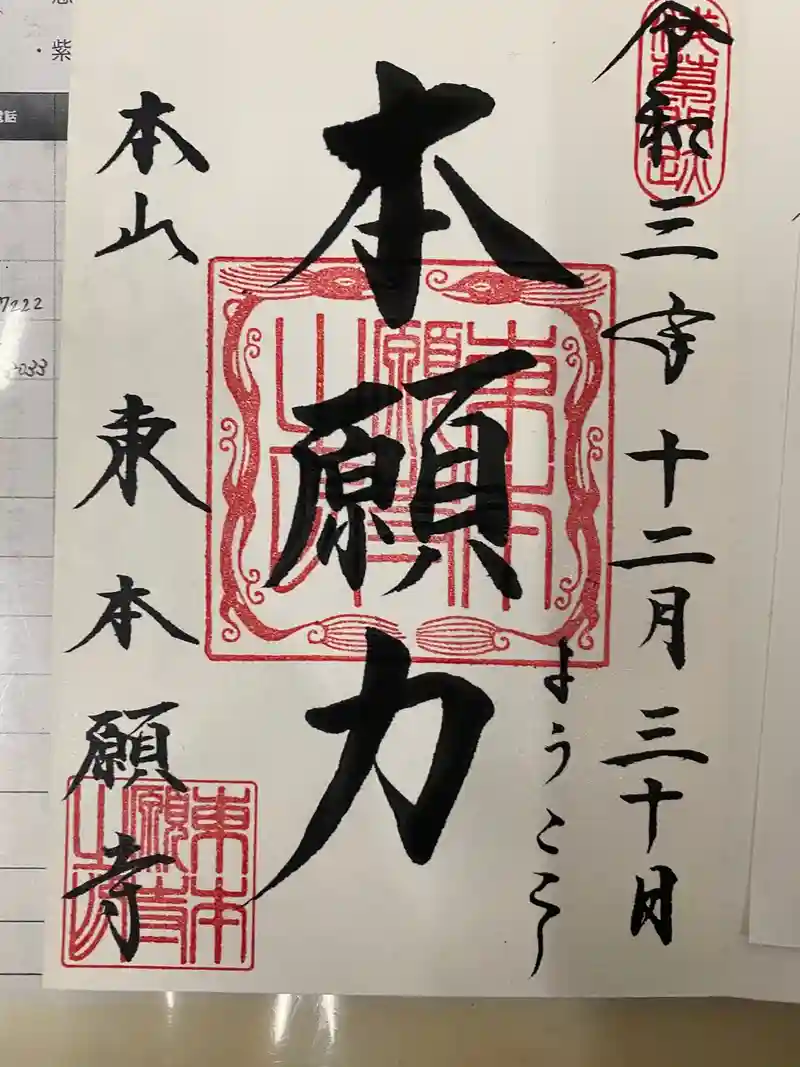 浅草門跡
令和三年十二月三十日
ようこそ
本願力
東本願寺之印
本山 東本願寺
東本願寺之印
・紫
電話
7222